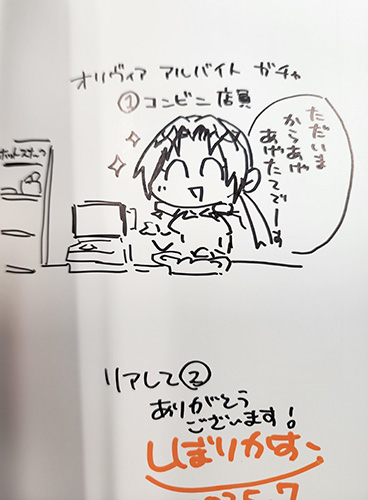 オリヴィア アルバイト ガチャ
①コンビニ店員
ただいま
からあげ
あげたてでーす
ホットスナック
リアして②
ありがとう
ございます!
しぼりかす、